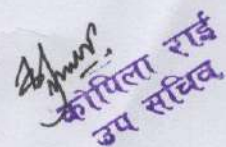 कोपिला राई
उप सचिव